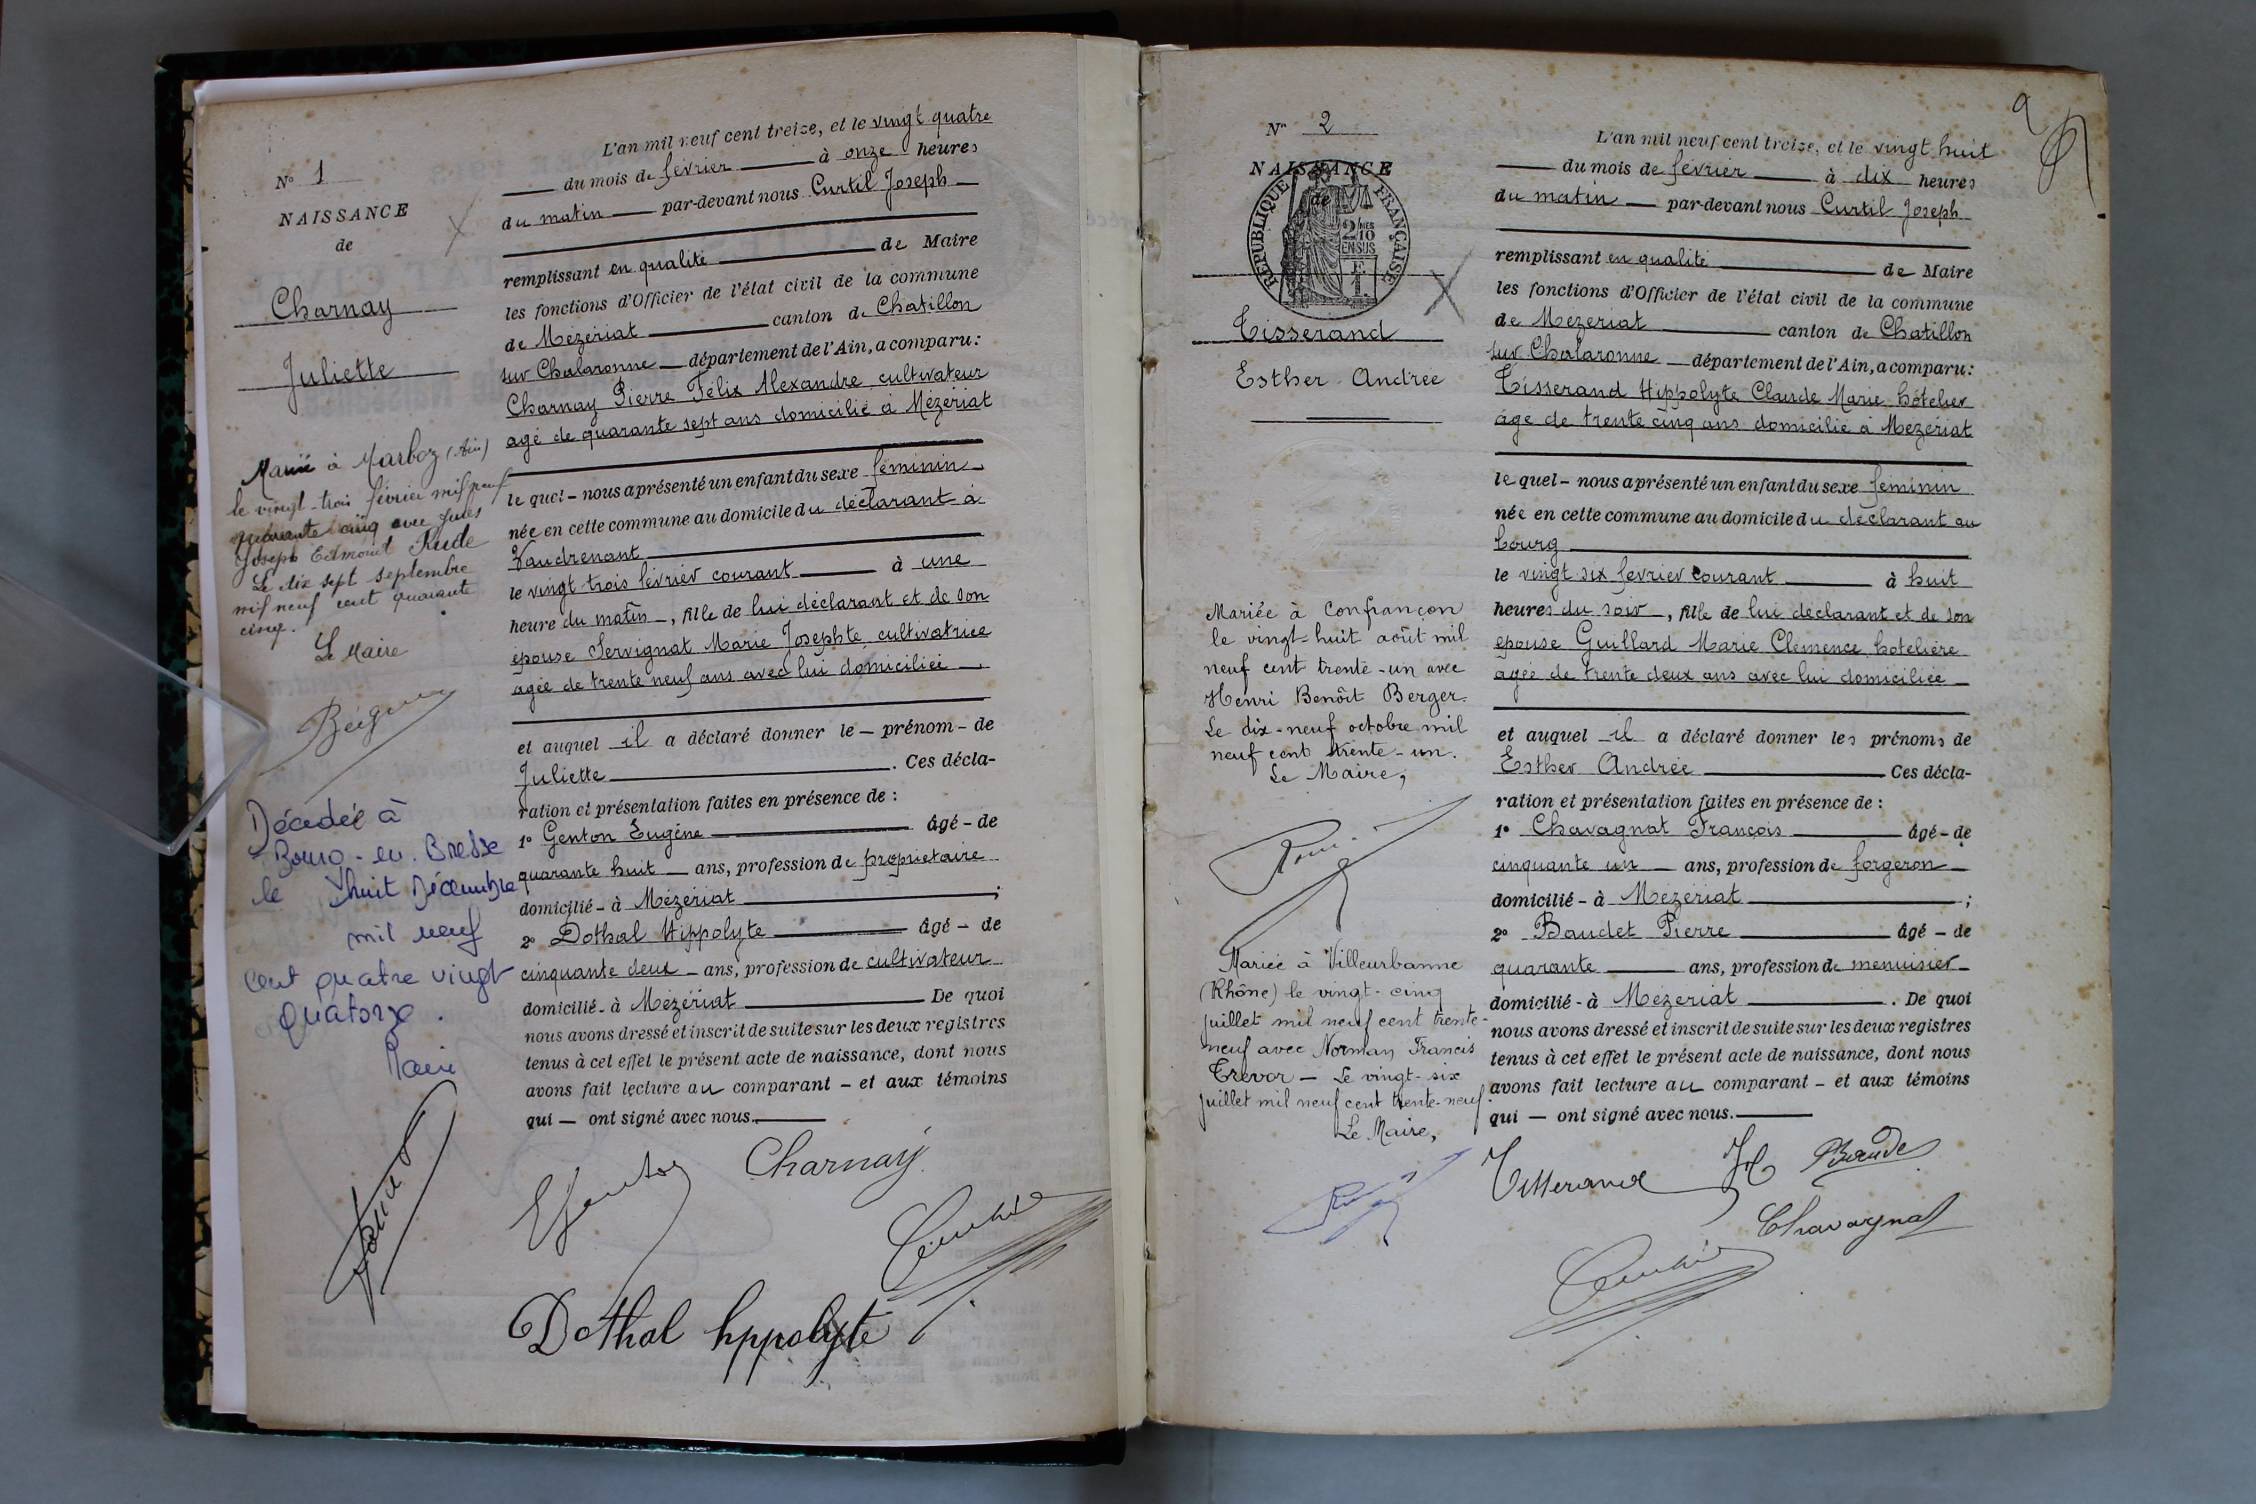 N° 1
NAISSANCE
de
Charnay
Juliette
Mariée à Marboz (Ain)
le vingt-trois février mil neuf
quarante cinq avec Jules
Joseph Edmond Rude
Le dix sept septembre
mil neuf cent quarante
cinq.
Le Maire
Décédée à
Bourg-en-Bresse
le huit Décembre
mil neuf
cent quatre vingt
quatorze.
L'an mil neuf cent treize, et le vingt quatre
du mois de février à onze heures
du matin par-devant nous Curtil Joseph
remplissant en qualité de Maire
les fonctions d'Officier de l'état civil de la commune
de Mézériat canton de Chatillon
sur Chalaronne département de l'Ain, a comparu:
Charnay Pierre Félix Alexandre cultivateur
agé de quarante sept ans domicilié à Mézériat
le quel – nous a présenté un enfant du sexe féminin
née en cette commune au domicile du déclarant à
Vaudrenant
le vingt trois février courant à une
heure du matin, fille de lui déclarant et de son
épouse Servignat Marie Josephte cultivatrice
agée de trente neuf ans avec lui domiciliée
et auquel il a déclaré donner le – prénom – de
Juliette. Ces décla-
ration et présentation faites en présence de :
1° Genton Eugène âgé – de
quarante huit ans, profession de propriétaire
domicilié – à Mézériat ;
2° Dothal Hippolyte âgé – de
cinquante deux ans, profession de cultivateur
domicilié – à Mézériat De quoi
nous avons dressé et inscrit de suite sur les deux registres
tenus à cet effet le présent acte de naissance, dont nous
avons fait lecture au comparant – et aux témoins
qui – ont signé avec nous.
Charnay
Dothal hppolyte
N° 2
NAISSANCE
de
RÉPUBLIQUE FRANÇAISE
2/10
EN SUS
Tisserand
Esther Andrée
Mariée à Confrançon
le vingt-huit août mil
neuf cent trente-un avec
Henri Benoît Berger.
Le dix-neuf octobre mil
neuf cent trente-un.
Le Maire,
Mariée à Villeurbanne
(Rhône) le vingt-cinq
juillet mil neuf cent trente-
neuf avec Norman Francis
Trevor – Le vingt-six
juillet mil neuf cent trente-neuf.
Le Maire,
2
L'an mil neuf cent treize, et le vingt huit
du mois de février à dix heures
du matin par-devant nous Curtil Joseph
remplissant en qualité de Maire
les fonctions d'Officier de l'état civil de la commune
de Mézériat canton de Chatillon
sur Chalaronne département de l'Ain, a comparu:
Tisserand Hippolyte Claude Marie hôtelier
âgé de trente cinq ans domicilié à Mézériat
le quel – nous a présenté un enfant du sexe féminin
née en cette commune au domicile du déclarant au
bourg
le vingt six février courant à huit
heures du soir, fille de lui déclarant et de son
épouse Guillard Marie Clémence hotelière
agée de trente deux ans avec lui domiciliée
et auquel il a déclaré donner les prénoms de
Esther Andrée Ces décla-
ration et présentation faites en présence de :
1° Chavagnat François âgé – de
cinquante un ans, profession de forgeron
domicilié – à Mézériat ;
2° Baudet Pierre âgé – de
quarante ans, profession de menuisier
domicilié – à Mézériat. De quoi
nous avons dressé et inscrit de suite sur les deux registres
tenus à cet effet le présent acte de naissance, dont nous
avons fait lecture au comparant – et aux témoins
qui – ont signé avec nous.
Tisserand H Baudet
Chavagnat